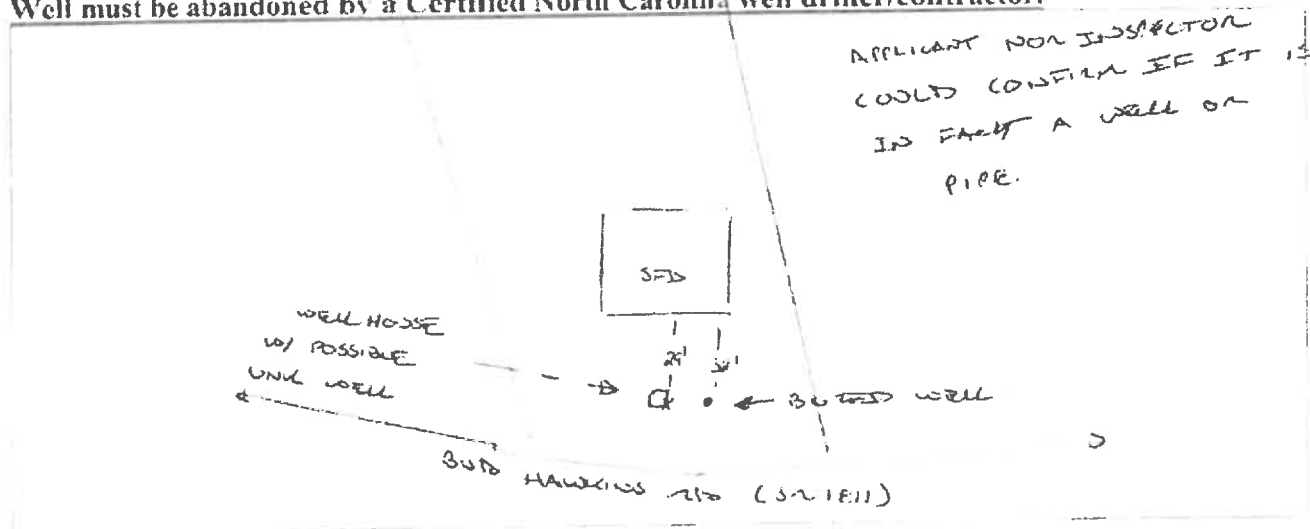 Well must be abandoned by a Certified North Carolina well driller/contractor.
APPLICANT NOR INSPECTOR
COULD CONFIRM IF IT IS
IN FACT A WELL OR
PIPE.
SFD
WELL HOUSE
W/ POSSIBLE
UNK WELL
29'
WELL
BUD HAWKINS RD (SR